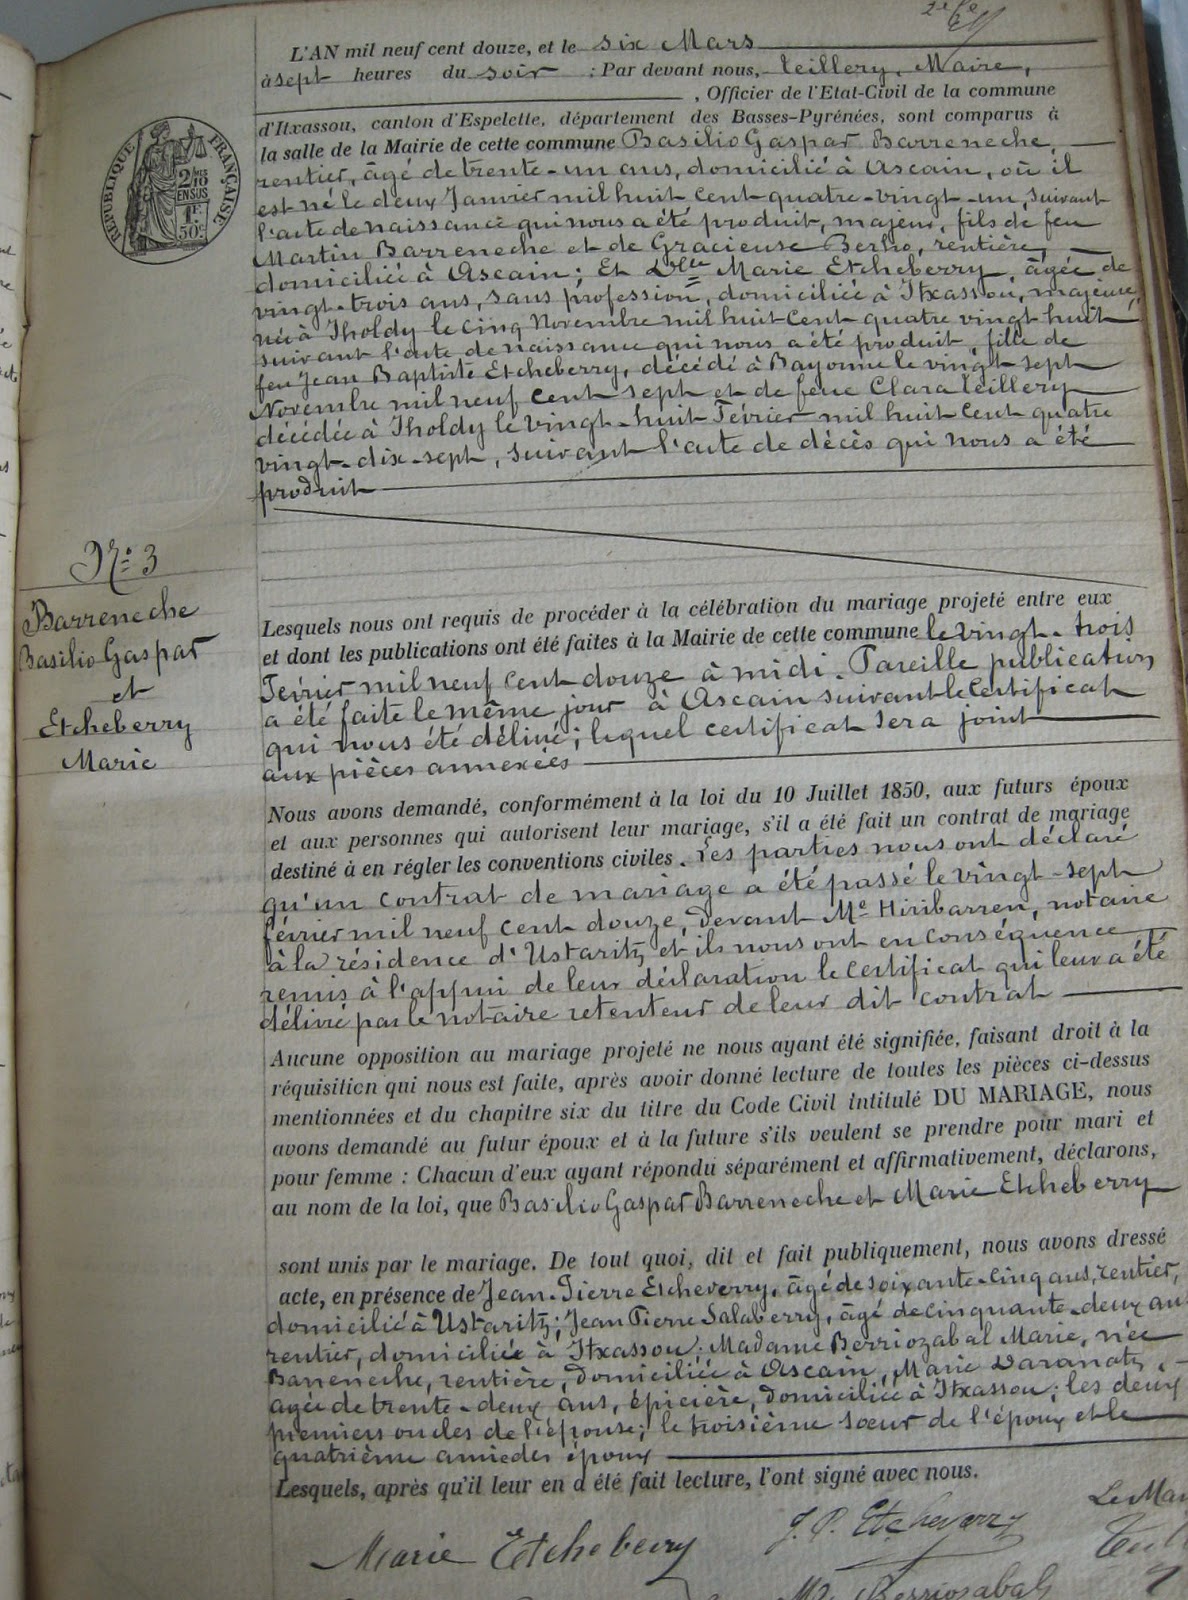 L'AN mil neuf cent douze, et le six Mars
à sept heures du soir : Par devant nous, Teillery, Maire,
, Officier de l'Etat-Civil de la commune
d'Itxassou, canton d'Espelette, département des Basses-Pyrénées, sont comparus à
la salle de la Mairie de cette commune Basilio Gaspar Barreneche,
rentier, âgé de trente-un ans, domicilié à Ascain, où il
est né le deux Janvier mil huit cent quatre-vingt-un, suivant
l'acte de naissance qui nous a été produit, majeur, fils de feu
Martin Barreneche et de Gracieuse Berho, rentière,
domiciliée à Ascain ; Et Dlle Marie Etcheberry, âgée de
vingt-trois ans, sans profession, domiciliée à Itxassou, majeure,
née à Iholdy le cinq Novembre mil huit cent quatre vingt huit
suivant l'acte de naissance qui nous a été produit, fille de
feu Jean Baptiste Etcheberry, décédé à Bayonne le vingt-sept
Novembre mil neuf cent sept et de feue Clara Teillery
décédée à Iholdy le vingt-huit Février mil huit cent quatre
vingt-dix-sept, suivant l'acte de décès qui nous a été
produit
REPUBLIQUE FRANÇAISE
2/10 EN SUS
1F 50c
Nº 3
Barreneche
Basilio Gaspar
et
Etcheberry
Marie
Lesquels nous ont requis de procéder à la célébration du mariage projeté entre eux
et dont les publications ont été faites à la Mairie de cette commune le vingt-trois
Février mil neuf cent douze à midi. Pareille publication
a été faite le même jour à Ascain suivant le certificat
qui nous été délivré ; lequel certificat sera joint
aux pièces annexées
Nous avons demandé, conformément à la loi du 10 Juillet 1850, aux futurs époux
et aux personnes qui autorisent leur mariage, s'il a été fait un contrat de mariage
destiné à en régler les conventions civiles. Les parties nous ont déclaré
qu'un contrat de mariage a été passé le vingt-sept
février mil neuf cent douze, devant Me Hiribarren, notaire
à la résidence d'Ustaritz et ils nous ont en conséquence
remis à l'appui de leur déclaration le certificat qui leur a été
délivré par le notaire retenteur de leur dit contrat
Aucune opposition au mariage projeté ne nous ayant été signifiée, faisant droit à la
réquisition qui nous est faite, après avoir donné lecture de toutes les pièces ci-dessus
mentionnées et du chapitre six du titre du Code Civil intitulé DU MARIAGE, nous
avons demandé au futur époux et à la future s'ils veulent se prendre pour mari et
pour femme : Chacun d'eux ayant répondu séparément et affirmativement, déclarons,
au nom de la loi, que Basilio Gaspar Barreneche et Marie Etcheberry
sont unis par le mariage. De tout quoi, dit et fait publiquement, nous avons dressé
acte, en présence de Jean-Pierre Etcheverry, âgé de soixante-cinq ans, rentier,
domicilié à Ustaritz ; Jean Pierre Salaberry, âgé de cinquante-deux ans
rentier, domicilié à Itxassou ; Madame Berriozabal Marie, née
Barreneche, rentière, domiciliée à Ascain, Marie Daranatz,
agée de trente-deux ans, épicière, domiciliée à Itxassou ; les deux
premiers oncles de l'épouse ; le troisième sœur de l'époux et le
quatrième amie des époux
Lesquels, après qu'il leur en a été fait lecture, l'ont signé avec nous.
Marie Etcheberry J. P. Etcheverry Le Mai